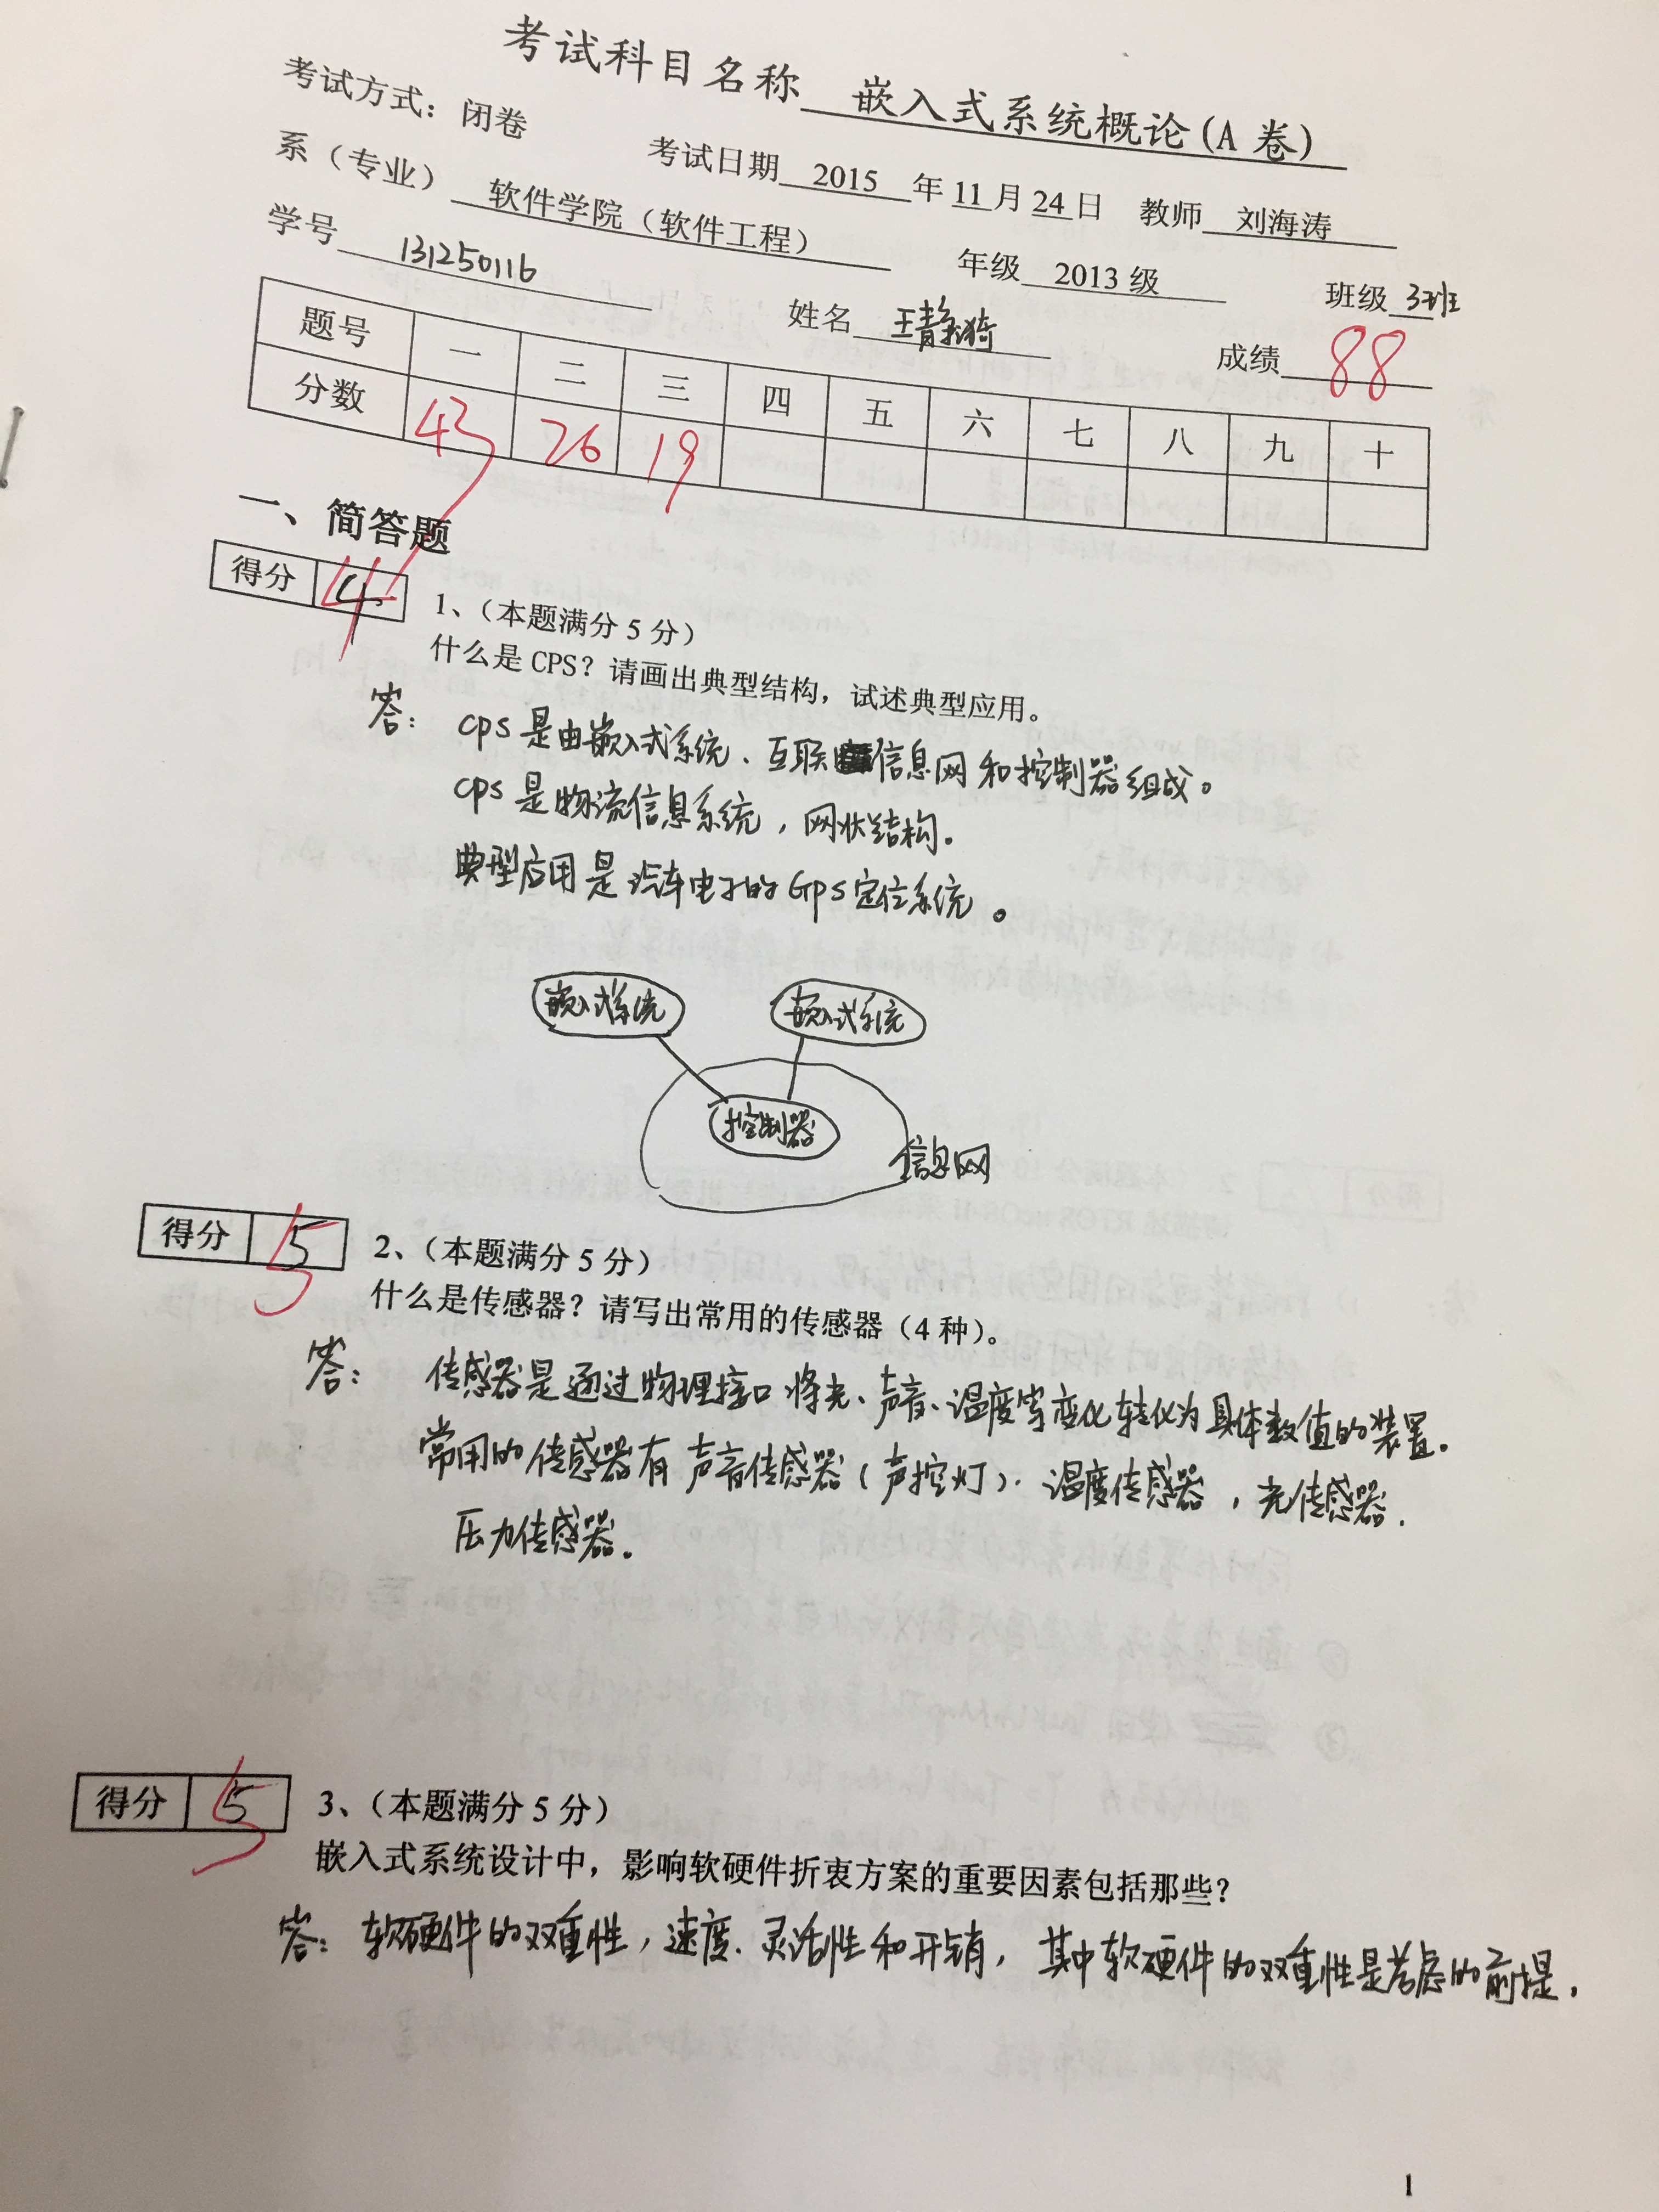 考试科目名称 嵌入式系统概论(A 卷)
考试方式：闭卷 考试日期 2015 年 11 月 24 日 教师 刘海涛
系（专业） 软件学院（软件工程） 年级 2013 级 班级 3班
学号 131250116 姓名 王静 成绩 88
题号 一 二 三 四 五 六 七 八 九 十
分数 43 26 19
一、简答题
得分 4
1、（本题满分 5 分）
什么是 CPS？请画出典型结构，试述典型应用。
答： cps 是由嵌入式系统、互联信息网和控制器组成。
cps 是物流信息系统，网状结构.
典型应用是汽车电子的 Gps 定位系统。
嵌入式系统 嵌入式系统
控制器
信息网
得分 5
2、（本题满分 5 分）
什么是传感器？请写出常用的传感器（4 种）。
答： 传感器是通过物理接口将光、声音、温度等变化转化为具体数值的装置。
常用的传感器有声音传感器（声控灯）. 温度传感器，光传感器.
压力传感器。
得分 5
3、（本题满分 5 分）
嵌入式系统设计中，影响软硬件折衷方案的重要因素包括那些？
答：软硬件的双重性，速度.灵活性和开销，其中软硬件的双重性是考虑的前提.
1